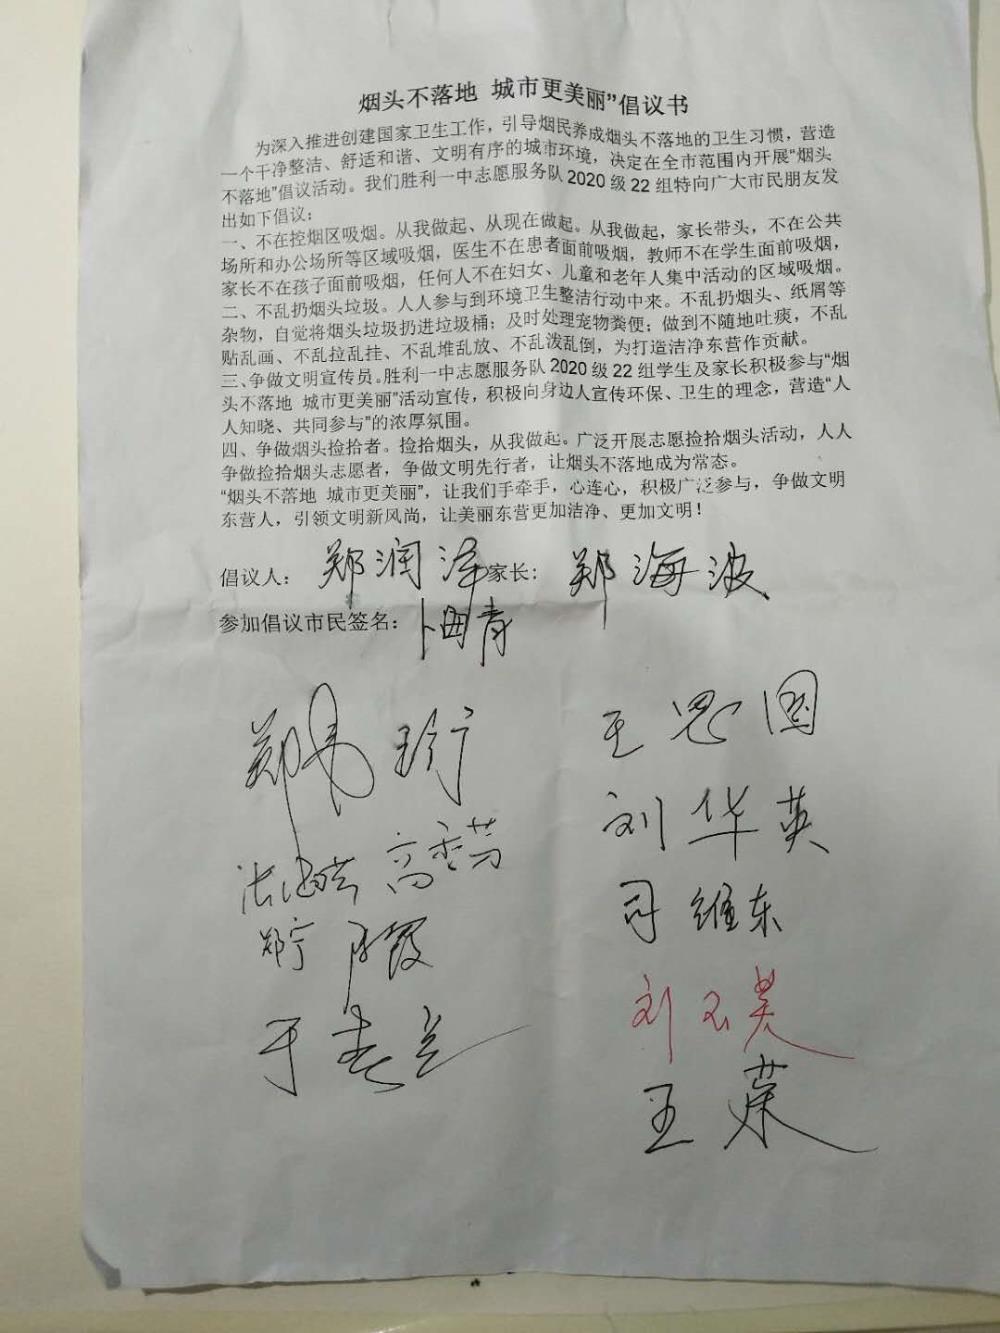 烟头不落地 城市更美丽”倡议书
为深入推进创建国家卫生工作，引导烟民养成烟头不落地的卫生习惯，营造
一个干净整洁、舒适和谐、文明有序的城市环境，决定在全市范围内开展“烟头
不落地”倡议活动。我们胜利一中志愿服务队 2020 级 22 组特向广大市民朋友发
出如下倡议：
一、不在控烟区吸烟。从我做起、从现在做起。从我做起，家长带头，不在公共
场所和办公场所等区域吸烟，医生不在患者面前吸烟，教师不在学生面前吸烟，
家长不在孩子面前吸烟，任何人不在妇女、儿童和老年人集中活动的区域吸烟。
二、不乱扔烟头垃圾。人人参与到环境卫生整洁行动中来。不乱扔烟头、纸屑等
杂物，自觉将烟头垃圾扔进垃圾桶；及时处理宠物粪便；做到不随地吐痰，不乱
贴乱画、不乱拉乱挂、不乱堆乱放、不乱泼乱倒，为打造洁净东营作贡献。
三、争做文明宣传员。胜利一中志愿服务队 2020 级 22 组学生及家长积极参与“烟
头不落地 城市更美丽”活动宣传，积极向身边人宣传环保、卫生的理念，营造“人
人知晓、共同参与”的浓厚氛围。
四、争做烟头捡拾者。捡拾烟头，从我做起。广泛开展志愿捡拾烟头活动，人人
争做捡拾烟头志愿者，争做文明先行者，让烟头不落地成为常态。
“烟头不落地 城市更美丽”，让我们手牵手，心连心，积极广泛参与，争做文明
东营人，引领文明新风尚，让美丽东营更加洁净、更加文明！
倡议人： 郑润泽 家长： 郑海波
参加倡议市民签名： 卜海青
王思国
刘华英
高秀芬
司维东
郑宁
于春兰
王荣